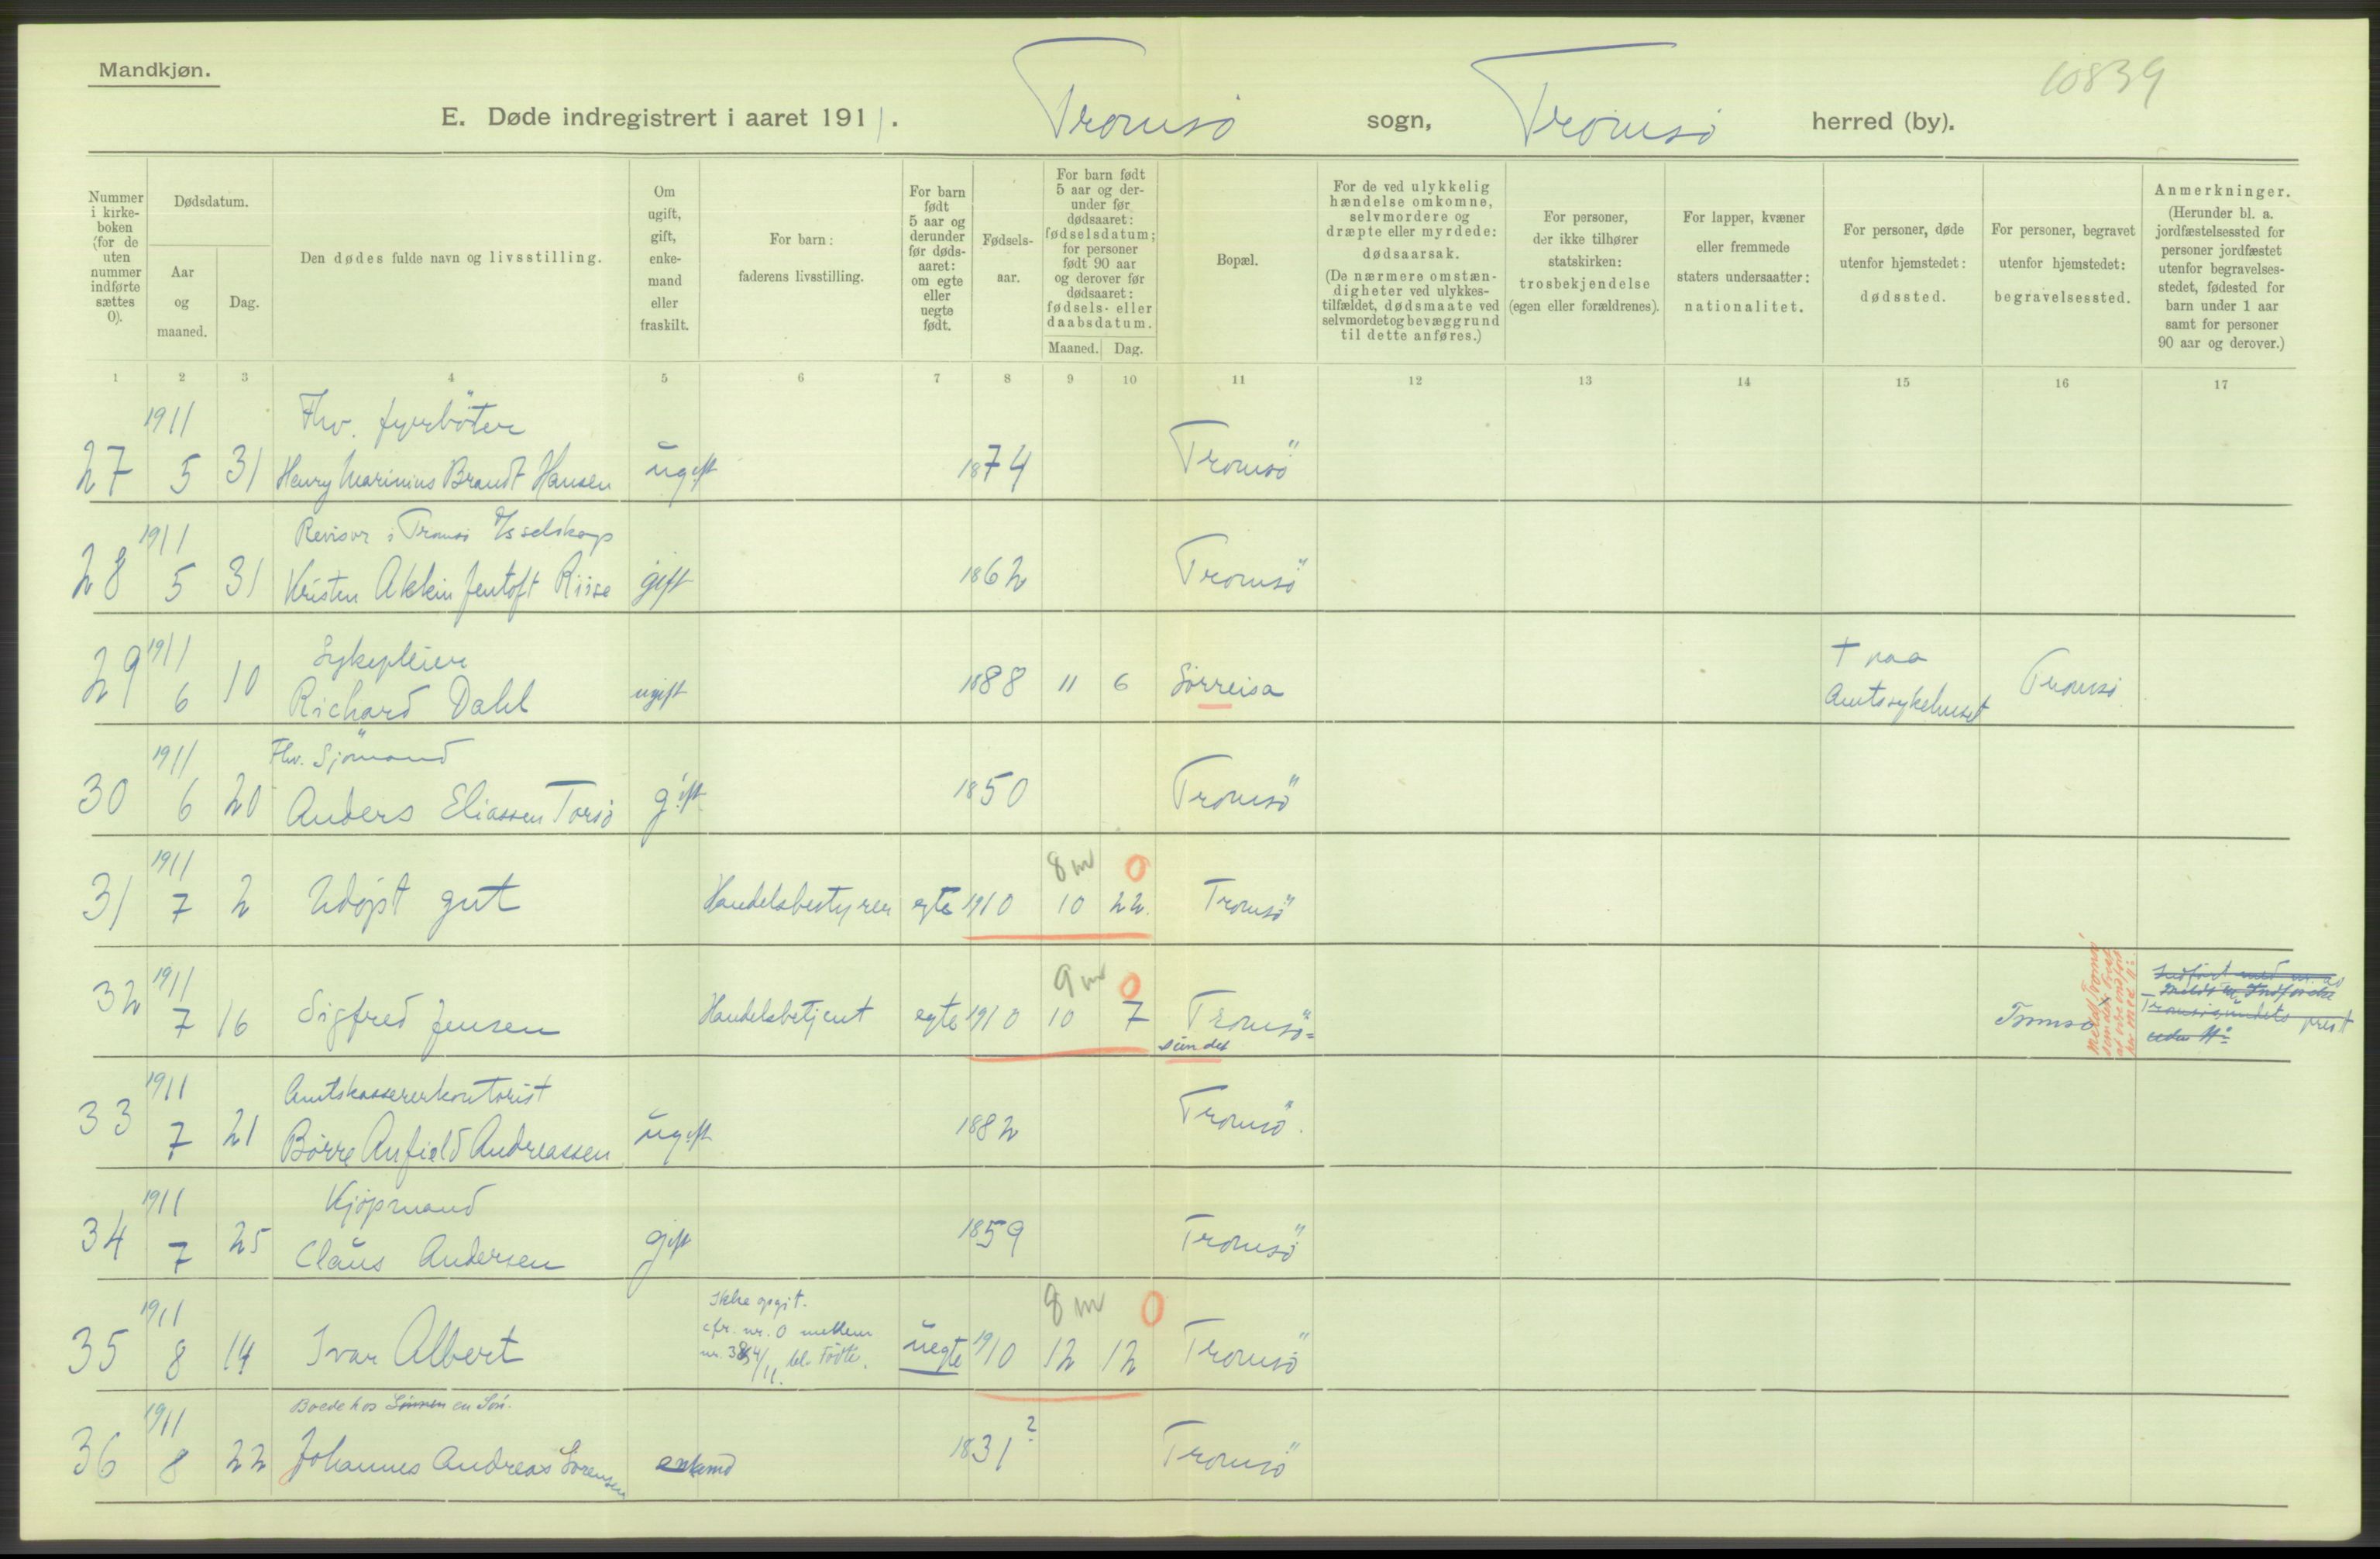 Mandkjøn.
10839
E. Døde indregistrert i aaret 1911. Tromsö sogn, Tromsö herred (by).
Nummer i kirke-boken (for de uten nummer indførte sættes 0).
Dødsdatum.
Aar og maaned.
Dag.
Den dødes fulde navn og livsstilling.
Om ugift, gift, enke-mand eller fraskilt.
For barn: faderens livsstilling.
For barn født 5 aar og derunder før døds-aaret: om egte eller uegte født.
Fødsels-aar.
For barn født 5 aar og der-under før dødsaaret: fødselsdatum; for personer født 90 aar og derover før dødsaaret: fødsels- eller daabsdatum.
Maaned. Dag.
Bopæl.
For de ved ulykkelig hændelse omkomne, selvmordere og dræpte eller myrdede: dødsaarsak. (De nærmere omstæn-digheter ved ulykkes-tilfældet, dødsmaate ved selvmordet og bevæggrund til dette anføres.)
For personer, der ikke tilhører statskirken: trosbekjendelse (egen eller forældrenes).
For lapper, kvæner eller fremmede staters undersaatter: nationalitet.
For personer, døde utenfor hjemstedet: dødssted.
For personer, begravet utenfor hjemstedet: begravelsessted.
Anmerkninger. (Herunder bl. a. jordfæstelsessted for personer jordfæstet utenfor begravelses-stedet, fødested for barn under 1 aar samt for personer 90 aar og derover.)
1 2 3 4 5 6 7 8 9 10 11 12 13 14 15 16 17
1911 Fhv. fyrböter
27 5 31 Henry Marinius Brandt Hansen ugift 1874 Tromsö
1911 Revisor i Tromsö
28 5 31 Kristen Akkin Jentoft Riise gift 1862 Tromsö
1911 Sykepleier † paa
29 6 10 Richard Dahl ugift 1888 11 6 Sörreisa Amtssykehuset Tromsö
1911 Fhv. Sjömand
30 6 20 Anders Eliassen Torsö gift 1850 Tromsö
1911 8 m 0
31 7 2 Udöpt gut Handelsbestyrer egte 1910 10 22. Tromsö
1911 9 m 0
32 7 16 Sigfred Jensen Handelsbetjent egte 1910 10 7 Tromsö=
sundet Tromsö
1911 Amtskassererkontorist
33 7 21 Börre Anfield Andreassen ugift 1882 Tromsö.
1911 Kjöpmand
34 7 25 Claus Andersen gift 1859 Tromsö
1911 Ikke opgit. 8 m 0
cfr. nr. 0 mellem
35 8 14 Ivar Albert uegte 1910 12 12 Tromsö
1911 Boede hos Sönnen en Sön.
36 8 22 Johannes Andreas Sörensen enkemd 1831? Tromsö